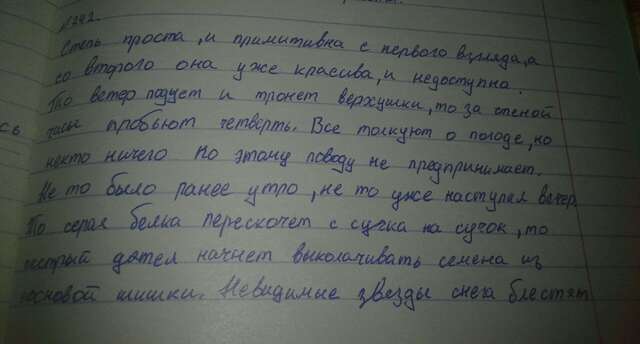 №242.
Степь проста, и примитивна с первого взгляда, а
со второго она уже красива, и недоступна.
То ветер подует и тронет верхушки, то за стеной
часы пробьют четверть. Все толкуют о погоде, но
некто ничего по этому поводу не предпринимает.
Не то было ранее утро, не то уже наступал вечер.
То серая белка перескочет с сучка на сучок, то
пестрый дятел начнет выколачивать семена из
сосновой шишки. Невидимые звезды снега блестят